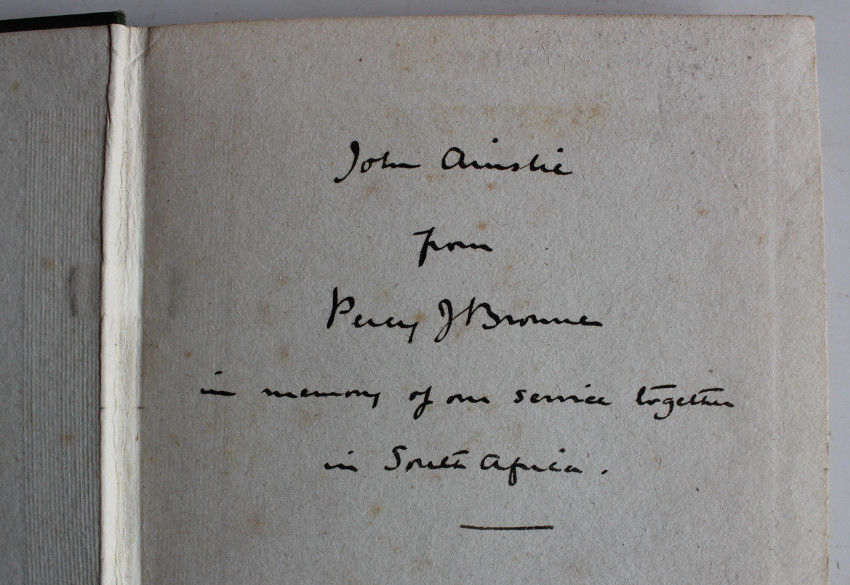 John Ainslie
from
Percy J Browne
in memory of our service together
in South Africa.